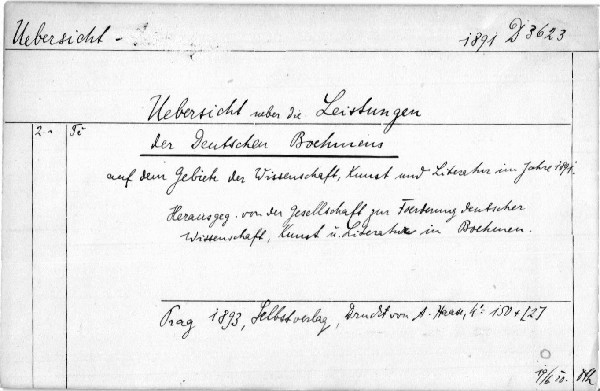 Uebersicht - 1891 D 3623
Uebersicht ueber die Leistungen
2 Te
der Deutschen Boehmens
auf dem Gebiete der Wissenschaft, Kunst und Literatur im Jahre 1891.
Herausgeg. von der Gesellschaft zur Foerderung deutscher
Wissenschaft, Kunst u. Literatur in Boehmen.
Prag 1893, Selbstverlag, Druck von A. Haase, 4°: 150 + [2]